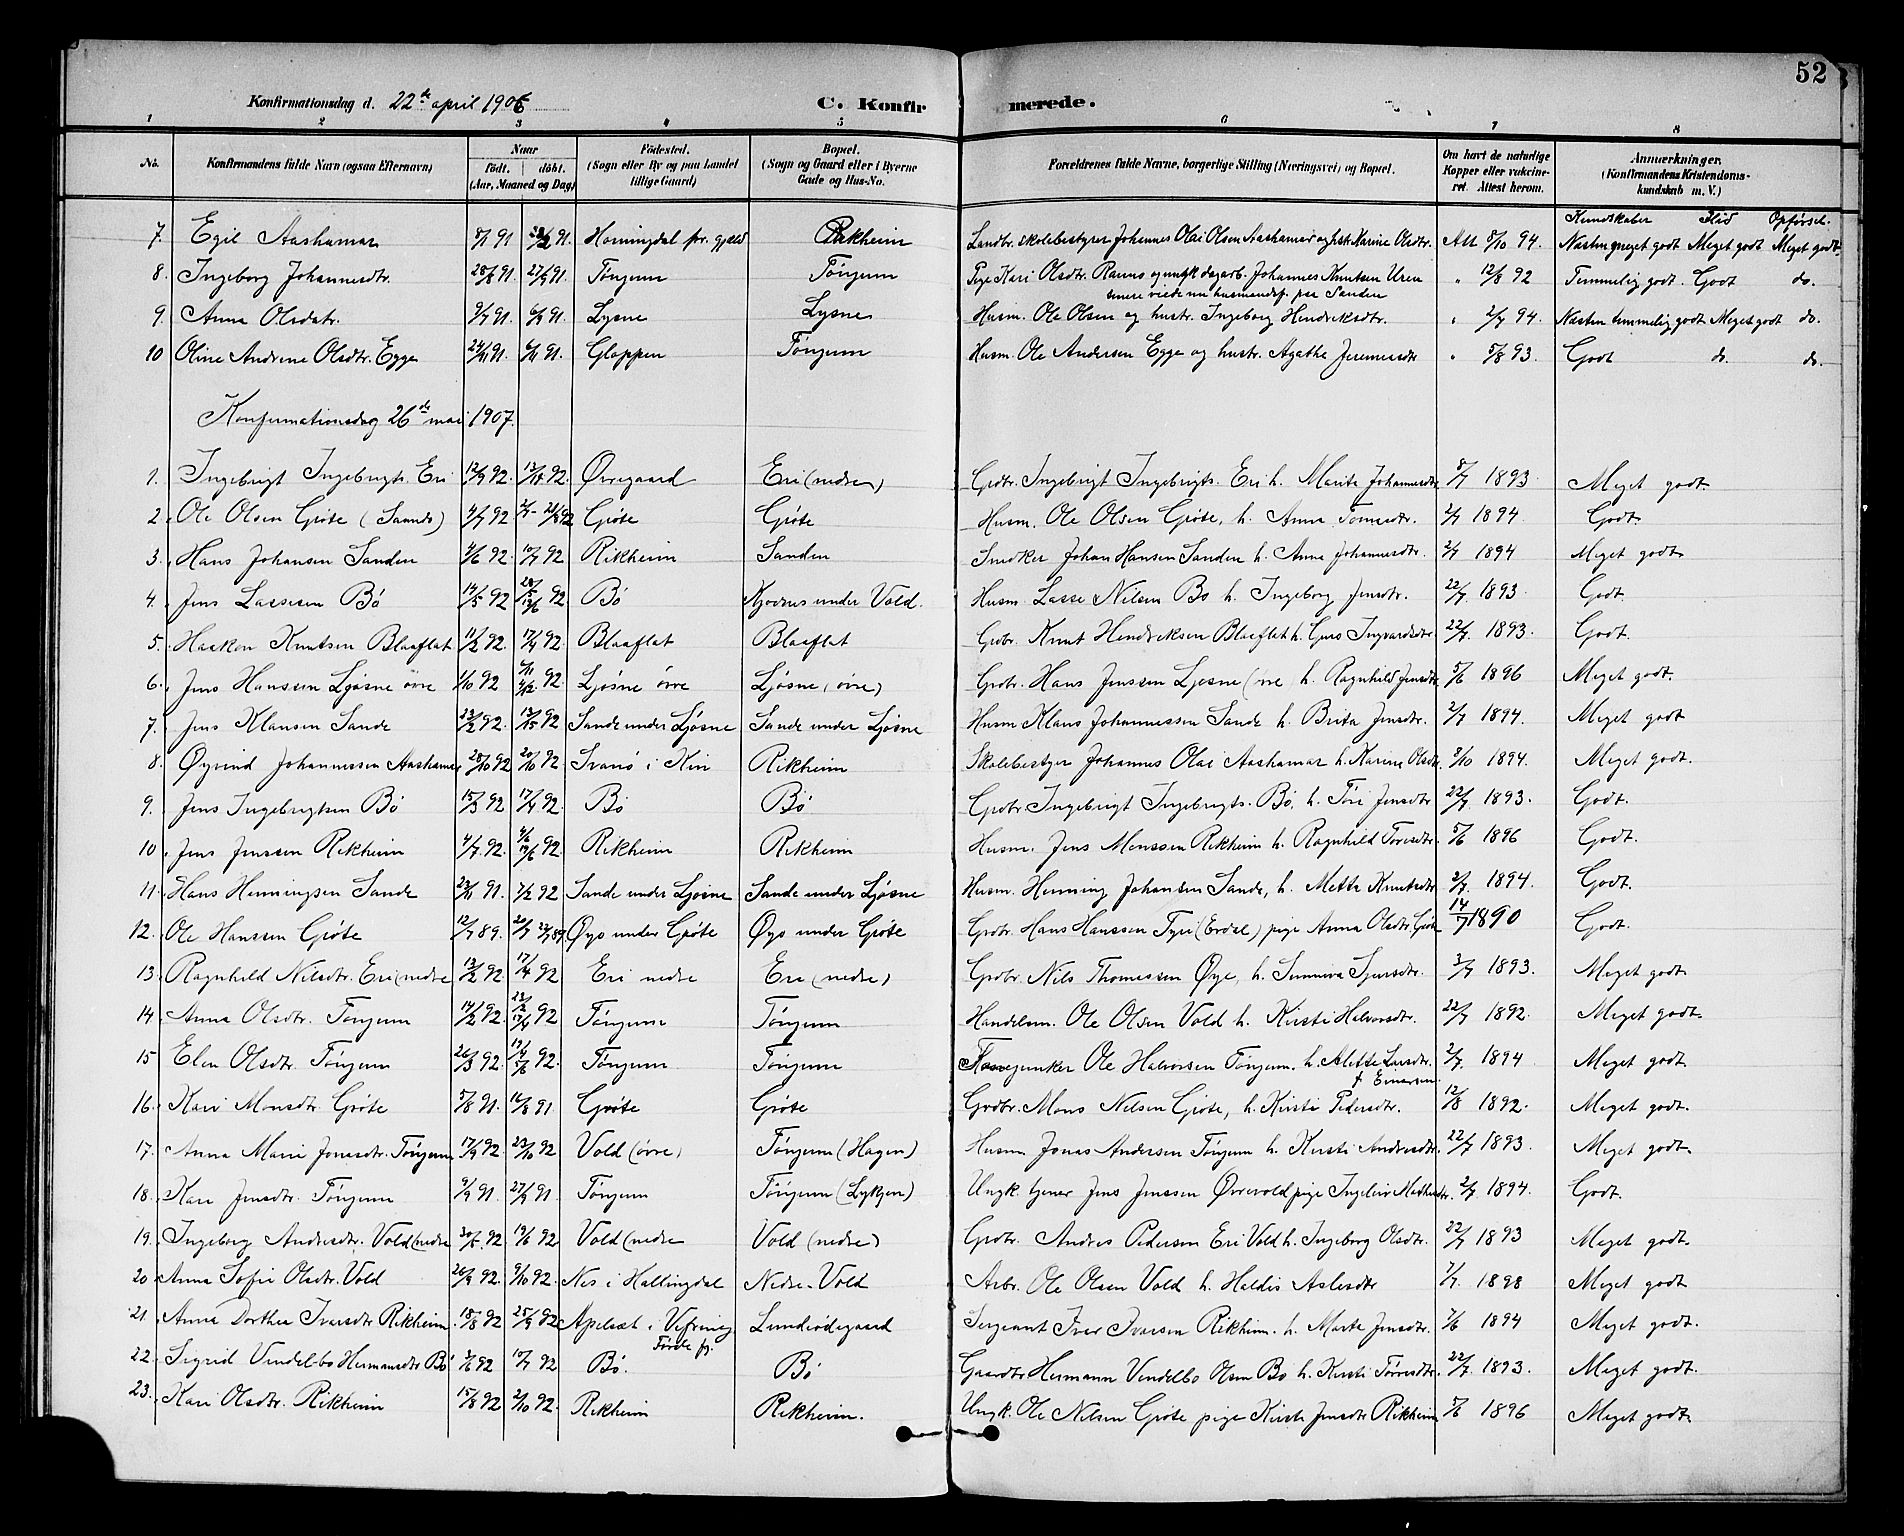 52
Konfirmationsdag d. 22de april 1906
C. Konfirmerede.
1 2 3 4 5 6 7 8
No. Konfirmandens fulde Navn (ogsaa Efternavn) Naar født. døbt. (Aar, Maaned og Dag) Fødested. (Sogn eller By og paa Landet tillige Gaard) Bopæl. (Sogn og Gaard eller i Byerne Gade og Hus-No. Forældrenes fulde Navne, borgerlige Stilling (Næringsvei) og Bopæl. Om havt de naturlige Kopper eller vakcineret. Attest herom. Anmærkninger. (Konfirmandens Kristendomskundskab m. V.)
Kundskaber Flid Opførsel.
7. Egil Aashamar 8/1 91 91. Horningdal pr.gjæld Rikheim Landbr. skolebestyrer Johannes Olai Olsen Aashamar og hst. Karine Olsdtr. Att 8/10 94. Næsten meget godt Meget godt Meget godt.
8. Ingeborg Johannesdtr. 28/8 91. 27/9 91. Tønjum Tønjum Pige Kari Olsdtr. og ungk. dagarb. Johannes Knutsen Uren " 12/8 92 Temmelig godt. Godt do.
senere viede nu husmandsf. paa Sanden
9. Anna Olsdatr. 9/7 91. 91. Lysne Lysne Husm. Ole Olsen og hustr. Ingeborg Hendriksdtr. " 2/7 94. Næsten temmelig godt Meget godt do.
10 Oline Andrine Olsdtr. Egge 24/11 91. 91. Gloppen Tønjum Husm. Ole Andersen Egge og hustr. Agathe Jeremiasdtr " 5/8 93. Godt do. do.
Konfirmationsdag 26de mai 1907.
1. Ingebrigt Ingebrigts. Eri 12/9 92. 92. Øvregaard Eri (nedre) Grdbr. Ingebrigt Ingebrigts. Eri h. Marita Johannesdtr. 8/7 1893 Meget godt.
2. Ole Olsen Grøte (Sande) 4/7 92 92 Grøte Grøte Husm. Ole Olsen Grøte, h. Anna Tomasdtr. 2/7 1894. Godt
3. Hans Johansen Sanden 4/6 92. 10/7 92 Rikheim Sanden Snedker Johan Hansen Sanden h. Anna Johannesdtr. 2/7 1894 Meget godt
4. Jens Lassesen Bø 14/5 92 28/5 12/6 92 Bø Kjødnes under Vold. Husm. Lasse Nilsen Bø h. Ingeborg Jensdtr. 22/7 1893. Godt
5. Haakon Knutsen Blaaflat 11/2 92. 17/4 92 Blaaflat Blaaflat Grdbr. Knut Hendriksen Blaaflat h. Guro Ingvardsdtr 22/7 1893. Godt
6. Jens Hanssen Ljøsne øvre 1/10 92 4/12 92. Ljøsne øvre Ljøsne (øvre) Grdbr. Hans Jenssen Ljøsne (øvre h. Ragnhild Jensdtr. 5/6 1896 Meget godt.
7. Jens Klausen Sande 23/2 92. 92 Sande under Ljøsne Sande under Ljøsne Husm Klaus Johannessen Sande h. Brita Jensdtr. 2/7 1894. Meget godt
8. Øyvind Johannessen Aashamar 92 92 Svanø i Kin Rikheim Skolebestyr Johannes Olai Aashamar h. Karine Olsdtr. 8/10 1894. Meget godt.
9. Jens Ingebrigtsen Bø 15/3 92 17/4 92 Bø Bø Grdbr. Ingebrigt Ingebrigts. Bø, h. Tori Jensdtr 22/7 1893. Godt.
10. Jens Jenssen Rikheim 4/7. 92. 92 Rikheim Rikheim Husm. Jens Monssen Rikheim h. Ragnhild Toresdtr. 5/6 1896 Godt.
11. Hans Henningsen Sande 23/11 91. 7/2 92 Sande under Ljøsne Sande under Ljøsne Husm. Henning Johansen Sande, h. Metta Knutsdtr 2/7. 1894. Godt.
12. Ole Hanssen Grøte 12/7 89. 89 Øye under Grøte Øye under Grøte Grdbr. Hans Hanssen Tyri (Erdal) pige Anna Olsdtr. Grøte 14/7 1890 Godt.
13. Ragnhild Nilsdtr. Eri (nedre 13/2 92 17/4 92 Eri nedre Eri (nedre) Grdbr. Nils Thomassen Øye, h. Sunniva Sjursdtr. 3/7 1893. Meget godt.
14. Anna Olsdtr. Tønjum 14/2 92. 17/4 92 Tønjum Tønjum Handelsm. Ole Olsen Vold h. Kirsti Halvorsdtr. 22/7 1892. Meget godt.
15 Elen Olsdtr. Tønjum 26/3 92 92. Tønjum Tønjum Ole Halvorsen Tønjum. h. Mette Larsdtr. 2/7. 1894 Meget godt
16. Kari Monsdtr. Grøte 5/8 91. 16/8 91 Grøte Grøte Grdbr. Mons Nilsen Grøte, h. Kirsti Pedersdtr. 12/8 1892. Meget godt.
17. Anna Marie Jonasdtr. Tønjum 17/9 92 23/10 92 Vold (øvre) Tønjum (Hagen) Husm Jonas Andersen Tønjum h. Kirsti Andersdtr. 22/7 1893. Meget godt
18. Kari Jensdtr. Tønjum 9/9 91. 27/9 91 Tønjum Tønjum (Lykjen) Ungk. tjener Jens Jenssen Øvrevold pige Ingeleiv 2/7 1894. Godt.
19. Ingeborg Andersdtr. Vold (nedre 30/5. 92 19/6 92 Vold (nedre Vold (nedre) Grdbr. Andres Pedersen Eri Vold h. Ingeborg Olsdtr. 22/7 1893 Meget godt.
20 Anna Sofie Olsdtr. Vold 26/9 92. 9/10 92. Nes i Hallingdal Nedre Vold Arbr. Ole Olsen Vold h. Haldis Aslesdtr 7/7 1898 Meget godt
21. Anna Dorthea Iversdtr Rikheim. 18/8 92 25/9 92 Apelsæt i Vefring Førde pr. Lunde ødegaard Sergeant Iver Iversen Rikheim. h. Marte Jensdtr. 7/6 1894 Meget godt.
22. Sigrid Vendelbo Hermansdtr Bø 92 10/7 92 Bø. Bø Gaardbr Hermann Vendelbo Olsen Bø h. Kirsti Tørresdtr. 22/7. 1893. Meget godt.
23. Kari Olsdtr. Rikheim 15/8 92 2/10 92. Rikheim Rikheim. Ungk. Ole Nilsen Grøte pige Kirsti Jensdtr Rikheim 5/6 1896 Meget godt.